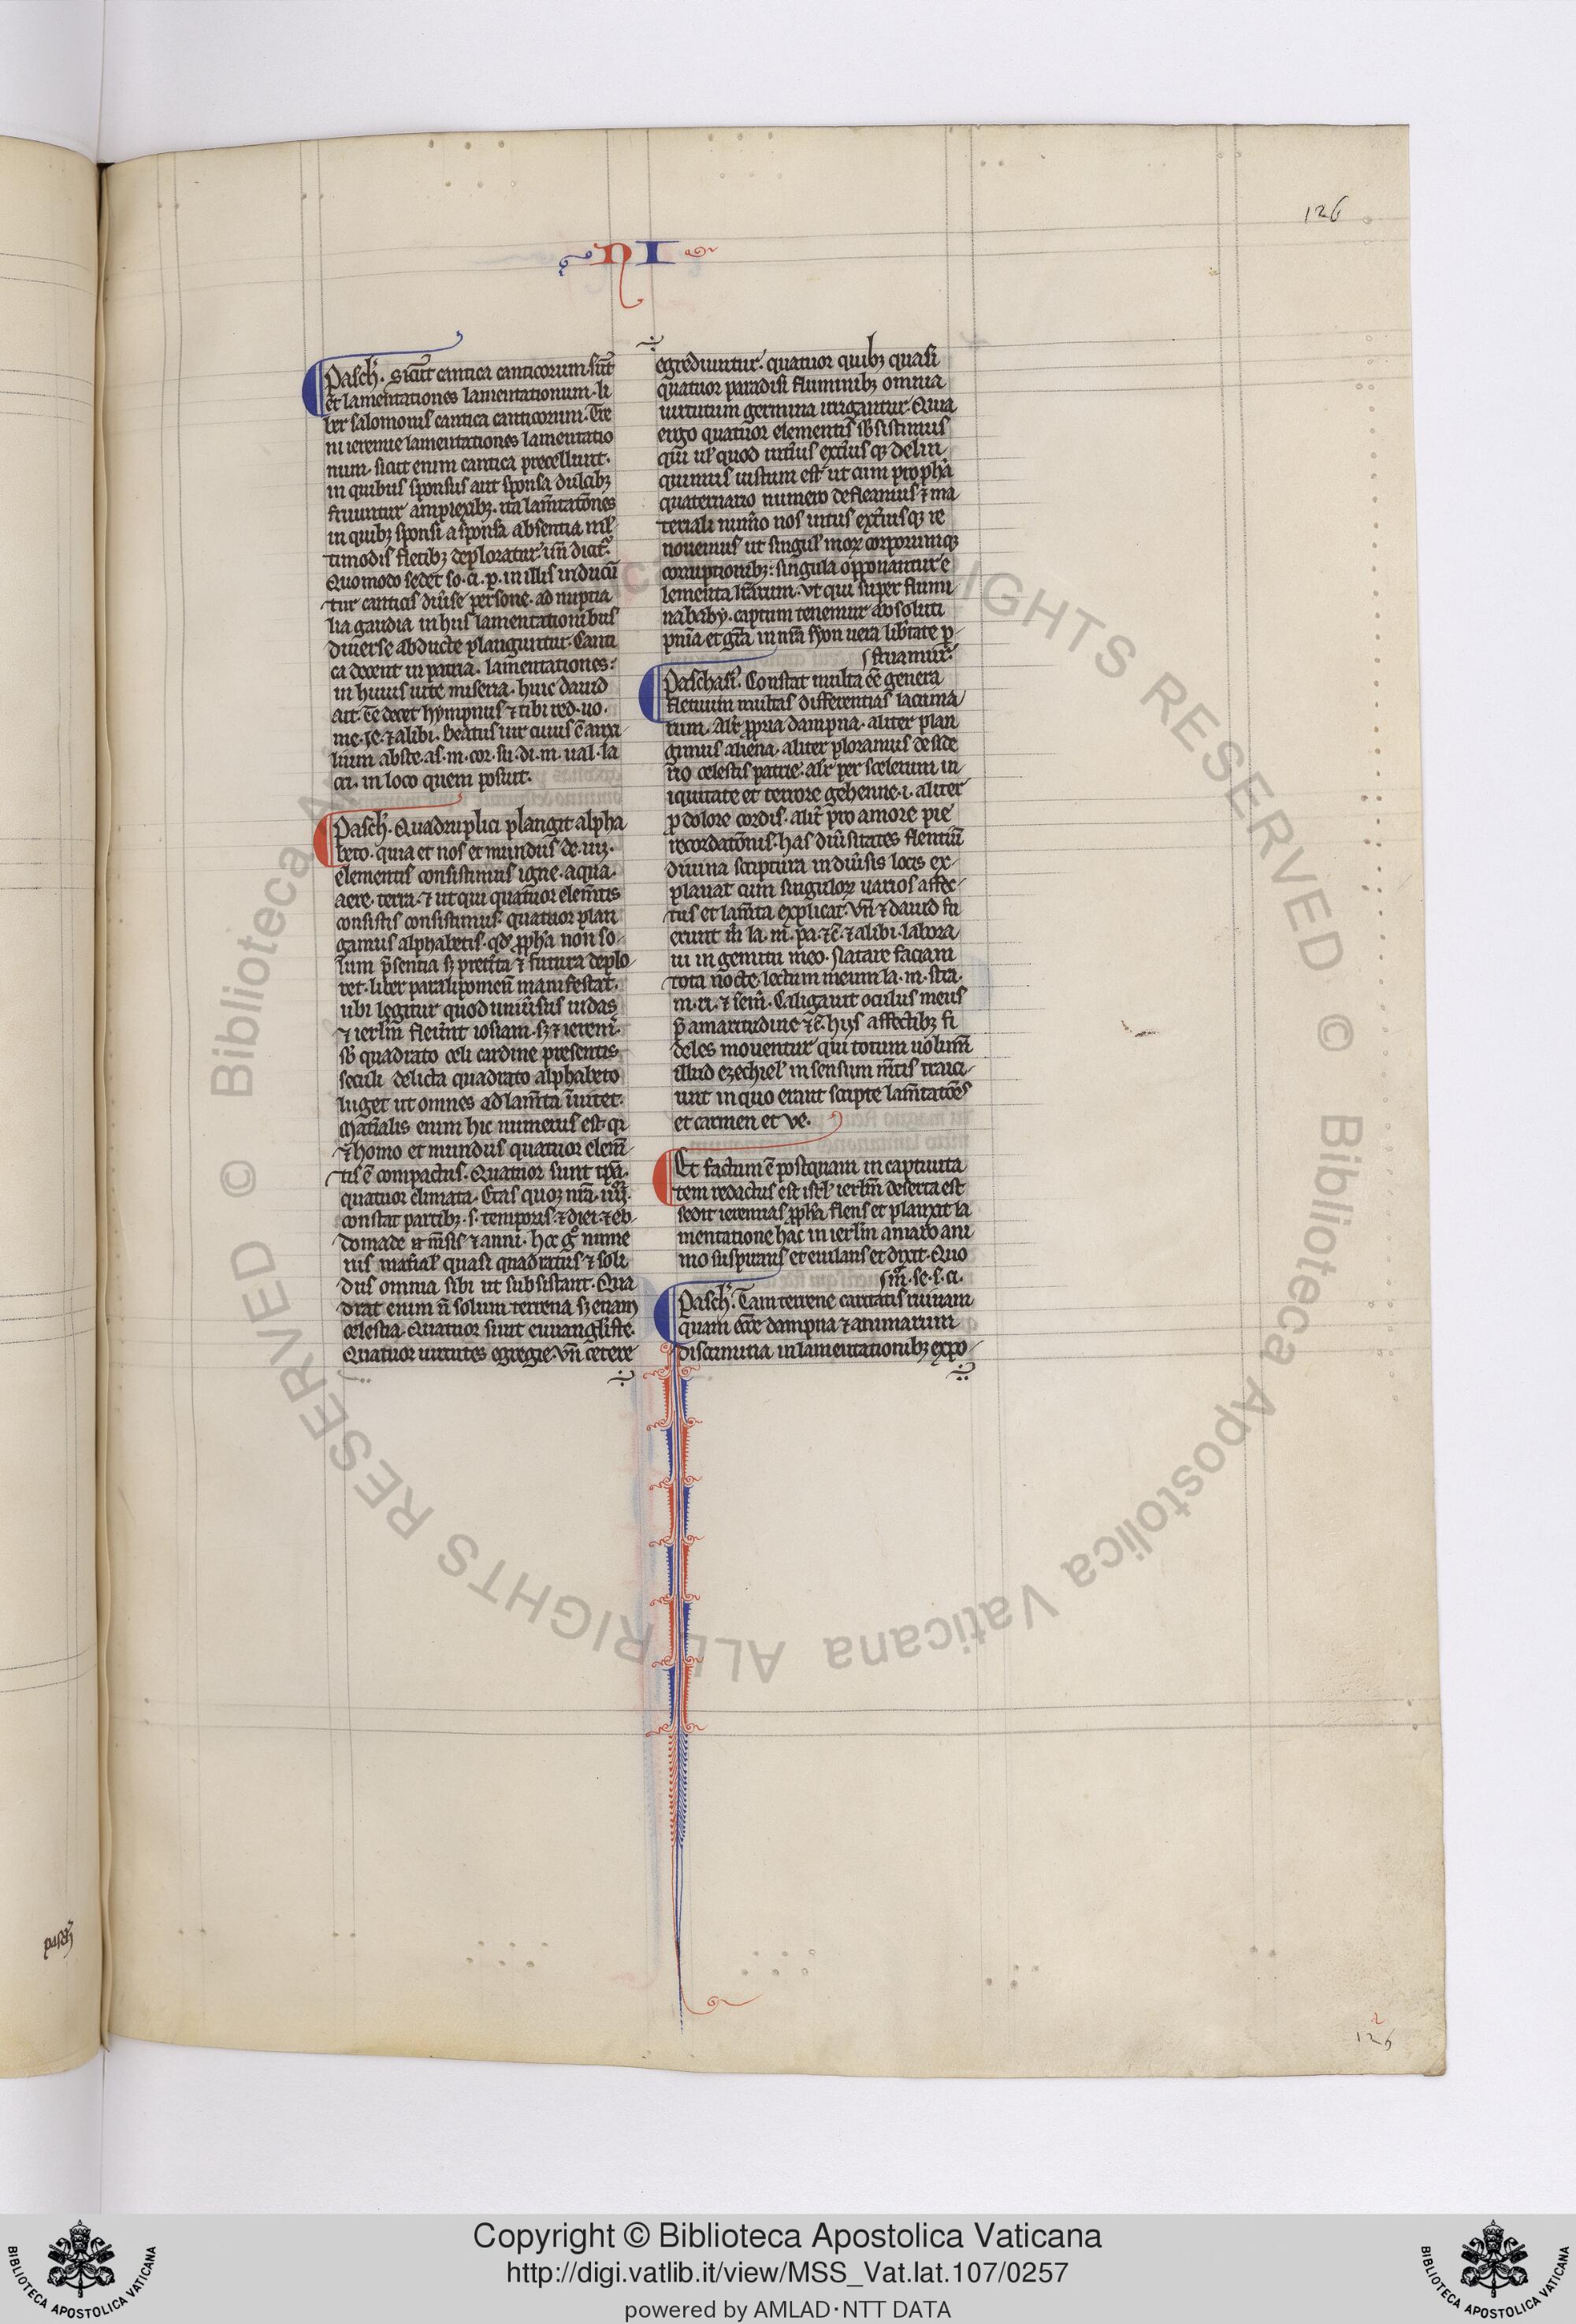 126
NI
Pasch᷒. Sicut cantica canticorum. sūt
et lamentationes lamentationum. li
ber salomonis cantica canticorum. Tre
ni ieremie lamentationes lamentatio
num. sicut enim cantica precellunt.
in quibus sponsus aut sponsa dulcibꝫ
fruuntur amplexibꝫ. ita lam̄tatōnes
in quibꝫ sponsi a sponsa absentia ml̄
timodis fletibꝫ deploratur. un̄ dicit᷒.
Quomodo sedet so. ci. p. in illis inducū
tur canticis diūse persone. ad nuptia
lia gaudia in hiis lamentationibus
diuerse abducte planguntur. Canti
ca decent in patria. lamentationes:
in huius uite miseria. hinc dauid
ait. Te decet hympnus ⁊ tibi red. uo.
me. Ie. ⁊ alibi. Beatus uir cuius ē auxi
lium abs te. as. m. cor. su. di. m. ual. la
cri. in loco quem posuit.
Pasch᷒. Quadruplici plangit alpha
beto. quia et nos et mundus de. iiij.
elementis consistimus igne. aqua.
aere. terra. ⁊ ut qui quatuor elem̄tis
consistis consistimus. quatuor plan
gamus alphabetis. qd ꝓpha non so
lum p̄sentia sꝫ pretita ⁊ futura deplo
ret. liber paralipomen̄ manifestat.
ubi legitur quod uniūsus iudas
⁊ ierl̄m fleūnt iosiam. sꝫ ⁊ ierem̄.
sb̄ quadrato celi cardine presentis
seculi delicta quadrato alphabeto
luget ut omnes ad lam̄ta īuitet.
Mat̄ialis enim hic numerus est. qr
⁊ homo et mundus quatuor elem̄
tis ē compactus. Quatuor sunt tp̄a.
quatuor climata. Etas quoꝫ nr̄a. iiijor.
constat partibꝫ. s. temporis. ⁊ diei. ⁊ eb
domade ⁊ m̄sis ⁊ anni. hoc gͦ nume
rus mat̄ial᷒ quasi quadratus ⁊ soli
dus omnia sibi ut subsistant. Qua
drat enim n̄ solum terrena sꝫ etiam
celestia. Quatuor sunt euuangliste.
Quatuor uirtutes egregie. vn̄ cetere
egrediuntur. quatuor quibꝫ quasi
quatuor paradisi fluminibꝫ omnia
uirtutum germina irrigantur. Quia
ergo quatuor elementis sb̄sistimus
qui ul᷒ quod int̄ius ext̄ius qꝫ delin
quimus iustum est ut cum propha
quaternario numero defleamus ⁊ ma
teriali num̄o nos intus ext̄iusqꝫ re
nouemus ut singul᷒ moꝝ corporumqꝫ
corruptionibꝫ: singula opponantur e
lementa lr̄arum. vt qui super flumi
na baby. captum tenemur absoluti
pnīa et gr̄a. in nr̄a syon uera lib̄tate p
fruamur.
Paschasi᷒. Constat multa eē genera
fletuum multas differentias lacrima
rum. Alr̄ ꝓpria dampna. aliter plan
gimus aliena. aliter ploramus deside
rio celestis patrie. alr̄ per scelerum in
iquitate et terrore gehenne. i. aliter
p dolore cordis. alit̄ pro amore pie
recordatōnis. has diūsitates flentiū
diuina scriptura in diūsis locis ex
planat cum singuloꝝ uarios affec
tus et lam̄ta explicat. Vn̄ ⁊ dauid fu
erunt m̄ la. m̄. pa. ⁊c̄. ⁊ alibi. labora
ui in gemitu meo. natare faciam
tota nocte. lectum meum la. m. stra.
m. ri. ⁊ it̄em̄. Caligauit oculus meus
p̄ amaritudine ⁊c̄. hiis affectibꝫ fi
deles mouentur qui totum uolum̄
illud ezechiel᷒ in sensum m̄tis traici
unt in quo erant scripte lam̄tatōes
et carmen et ve.
Et factum ē postquam in captiuita
tem redactus est isrl᷒ ierl̄m deserta est
sedit ieremias ꝓpha flens et planxit la
mentatione hac in ierl̄m amaro ani
mo suspirans et eiulans et dixit. Quo
mͦ. se. s. ci.
Pasch᷒. Tam terrene caritatis ruinam
quam ecc̄e dampna ⁊ animarum
discrimina in lamentationibꝫ expo
pasch᷒
2
126
Copyright © Biblioteca Apostolica Vaticana
http://digi.vatlib.it/view/MSS_Vat.lat.107/0257
powered by AMLAD·NTT DATA
BIBLIOTECA APOSTOLICA VATICANA
BIBLIOTECA APOSTOLICA VATICANA
© Biblioteca Apostolica Vaticana ALL RIGHTS RESERVED © Biblioteca Apostolica Vaticana ALL RIGHTS RESERVED